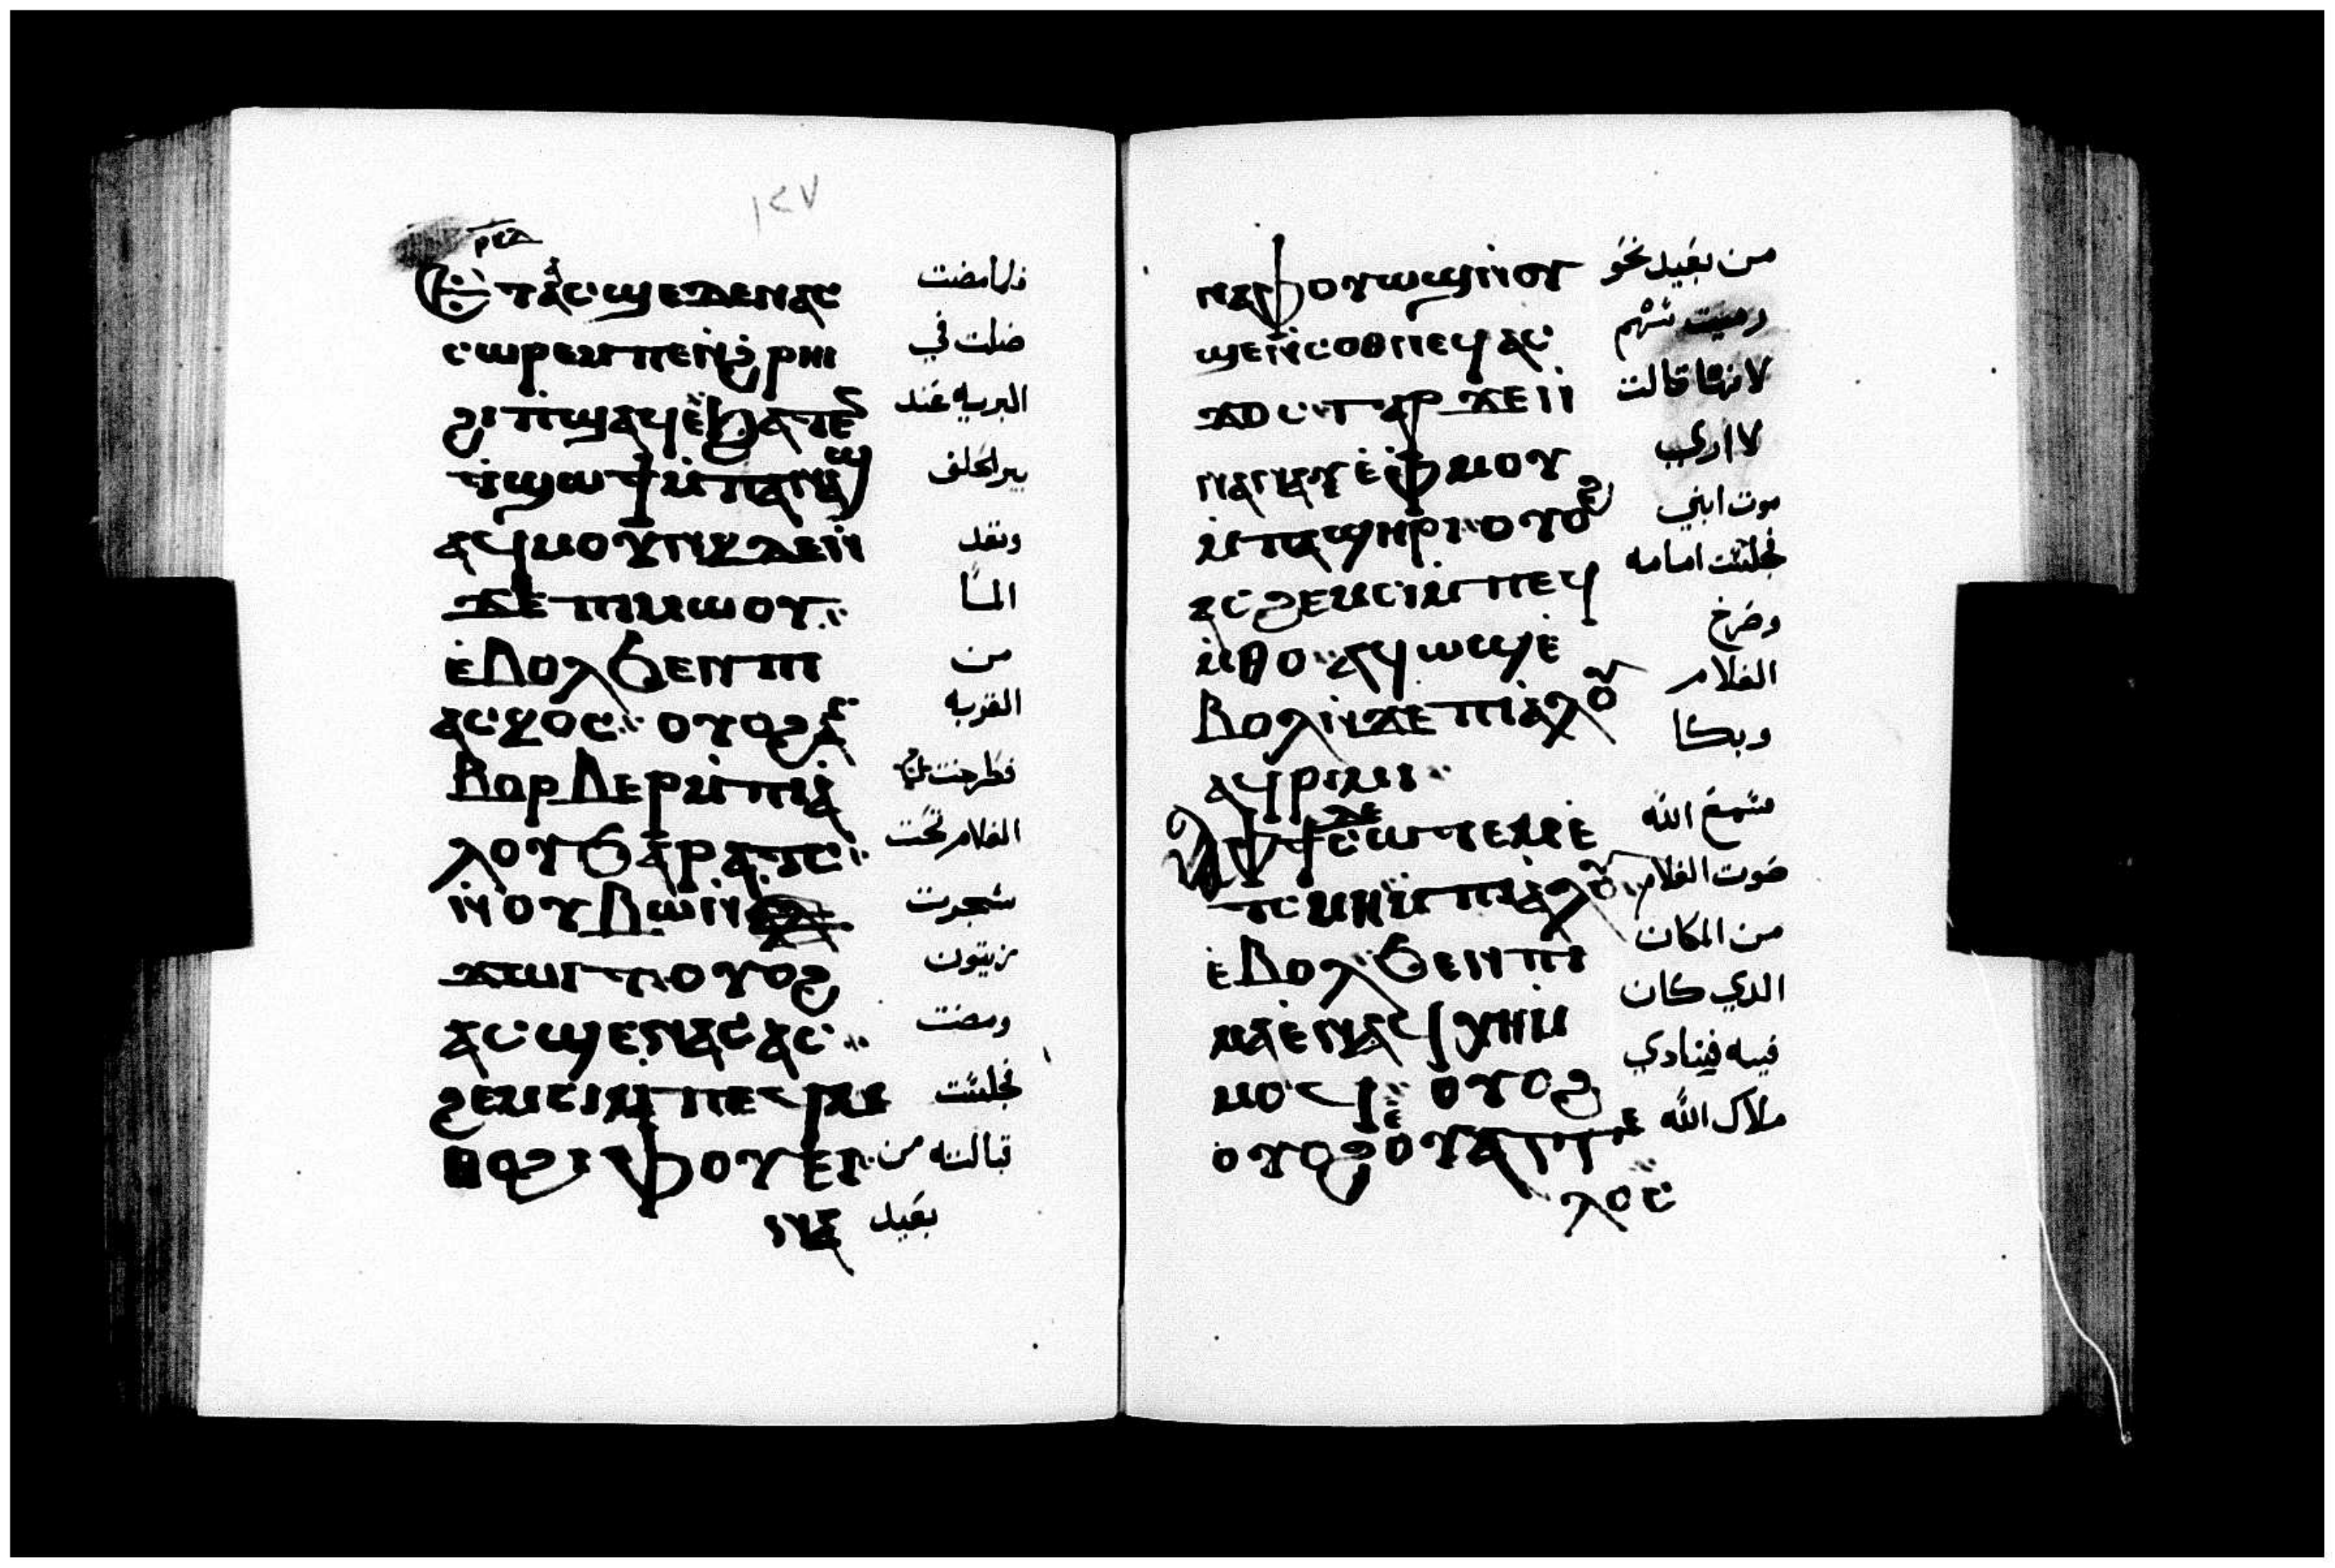 ١٢٧
ⲣⲕⲍ
Ⲉⲧⲁⲥϣⲉⲇⲉⲛⲁⲥ فلما مضت
ⲥⲱⲣⲉⲙⲡⲉⲛ̀ϩⲣⲏⲓ ضلت في
ϩⲓⲡϣⲁϥⲉ̀ϧⲁⲧⲉⲛ البريه عند
ϯϣⲱϯⲙ̀ⲡⲁⲛⲁϣ بير الحلف
ⲁϥⲙⲟⲩⲛⲕⲇⲉⲛ̀ ونفد
ϫⲉⲡⲓⲙⲱⲟⲩ⁘ الما
ⲉ̀ⲃⲟⲗϧⲉⲛⲡⲓ من
ⲁⲥⲕⲟⲥ⁘ ⲟⲩⲟϩⲁⲥ القربه
ⲃⲟⲣⲃⲉⲣⲙ̀ⲡⲓⲁ̀ فطرحت
ⲗⲟⲩϧⲁⲣⲁⲧⲥ⁘ الغلام تحت
ⲛ̀ⲟⲩⲃⲱⲛ̀ شجرت
ϫⲱⲓⲧⲟⲩⲟϩ زيتون
ⲁⲥϣⲉⲛⲁⲥⲁⲥ⁘ ومضت
ϩⲉⲙⲥⲓⲙ̀ⲡⲉϥⲙ̀ فجلست
ⲑⲟϩⲓⲫⲟⲩⲉⲓ قبالته من
ⲛⲁ بعيد
ⲛⲁⲫⲟⲩⲱϣⲛ̀ⲟⲩ من بعيد نحو
ϣⲉⲛ̀ⲥⲟⲑⲛⲉϥ ⲁⲥ رميت سهم
ϫⲟⲥⲅⲁⲣϫⲉⲛ̀ لانها قالت
ⲛⲁⲛⲁⲩⲉ̀ⲫ̀ⲙⲟⲩ لا اري
ⲙ̀ⲡⲁϣⲏⲣⲓ⁘ⲟⲩⲟϩ موت ابني
ⲁⲥϩⲉⲙⲥⲓⲙ̀ⲡⲉϥ فجلست امامه
ⲙ̀ⲑⲟ⁘ⲁϥⲱϣⲉ̀ وصرخ
ⲃⲟⲗⲛ̀ϫⲉⲡⲓⲁ̀ⲗⲟⲩ الغلام
ⲁϥⲣⲓⲙⲓ⁘ وبكا
Ⲁⲫϯⲇⲉⲥⲱⲧⲉⲙⲉ̀ سمع الله
ⲧⲥⲙⲏⲙ̀ⲡⲓⲁ̀ⲗⲟⲩ صوت الغلام
ⲉ̀ⲃⲟⲗϧⲉⲛⲡⲓ من المكان
ⲙⲁⲉ̀ⲛⲁϥⲭⲏⲙ̀ الدي كان
ⲙⲟϥ⁘ ⲟⲩⲟϩ فيه فينادي
ⲟⲩⲟϩⲟⲩⲁⲅⲅⲉ ملاك الله
ⲗⲟⲥ